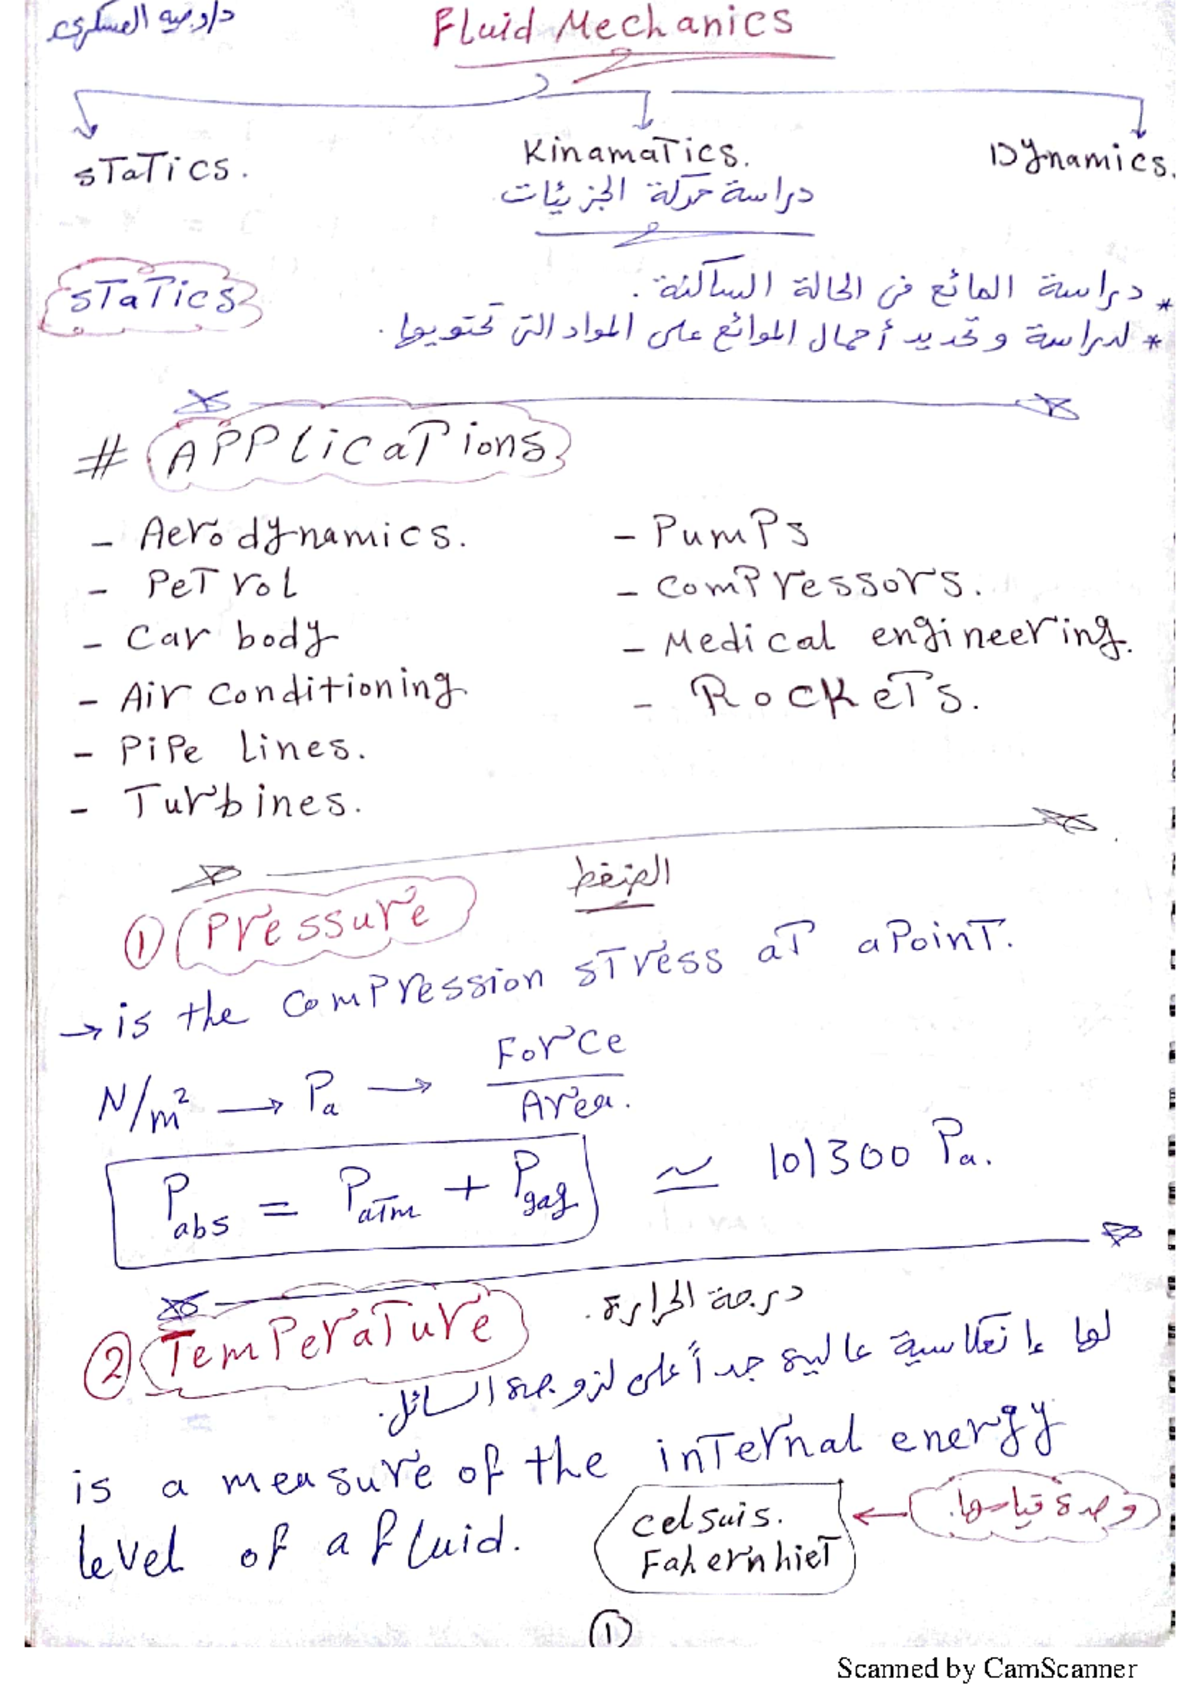 د/وجيه العسكرى
Fluid Mechanics
sTaTics.
KinamaTics.
Dynamics.
دراسة حركة الجزيئات
sTaTics
* دراسة المائع فى الحالة الساكنة.
* لدراسة وتحديد أحمال الموائع على المواد التى تحتويها.
# APPlicaTions
- Aerodynamics.
- PeTrol
- Car body
- Air conditioning
- PiPe lines.
- Turbines.
- PumPs
- comPressors.
- Medical engineering.
- RockeTs.
الضغط
① Pressure
→ is the comPression sTress aT aPoinT.
N/m² → Pa → Force / Area.
Pabs = PaTm + Pgag ≃ 101300 Pa.
درجة الحرارة.
② TemPeraTure
لها إنعكاسية عالية جداً على لزوجة السائل.
is a measure of the inTernal energy
level of a fluid.
وحدة قياسها.
celsuis.
FahernhieT
①
Scanned by CamScanner